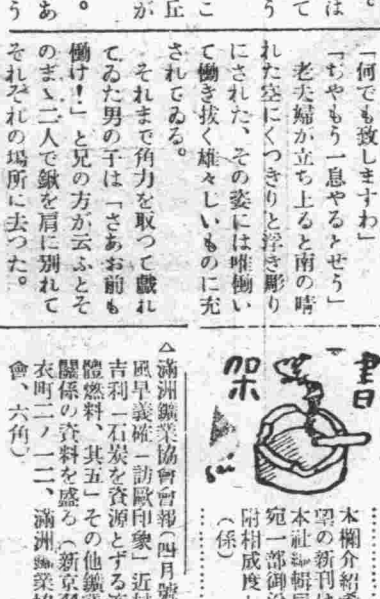 「何でも致しますわ」
「ぢやもう一息やるとせう」
老夫婦が立ち上ると南の晴
れた空にくつきりと浮き彫り
にされた、その姿には唯働い
て働き抜く雄々しいものに充
されてゐる。
それまで角力を取つて戯れ
てゐた男の子は「さあお前も
働け!」と兄の方が云ふとそ
のまゝ二人で鍬を肩に別れて
それぞれの場所に去つた。
書架
本欄介紹
望の新刊
本社編輯
宛一部御
附相成度
(係)
△滿洲鑛業協會會報(四月號
風早義確「訪歐印象」近
吉利「石炭を資源とする
體燃料、其五」その他鑛
關係の資料を盛る(新京
衣町二ノ一二、滿洲鑛業協
會、六角)